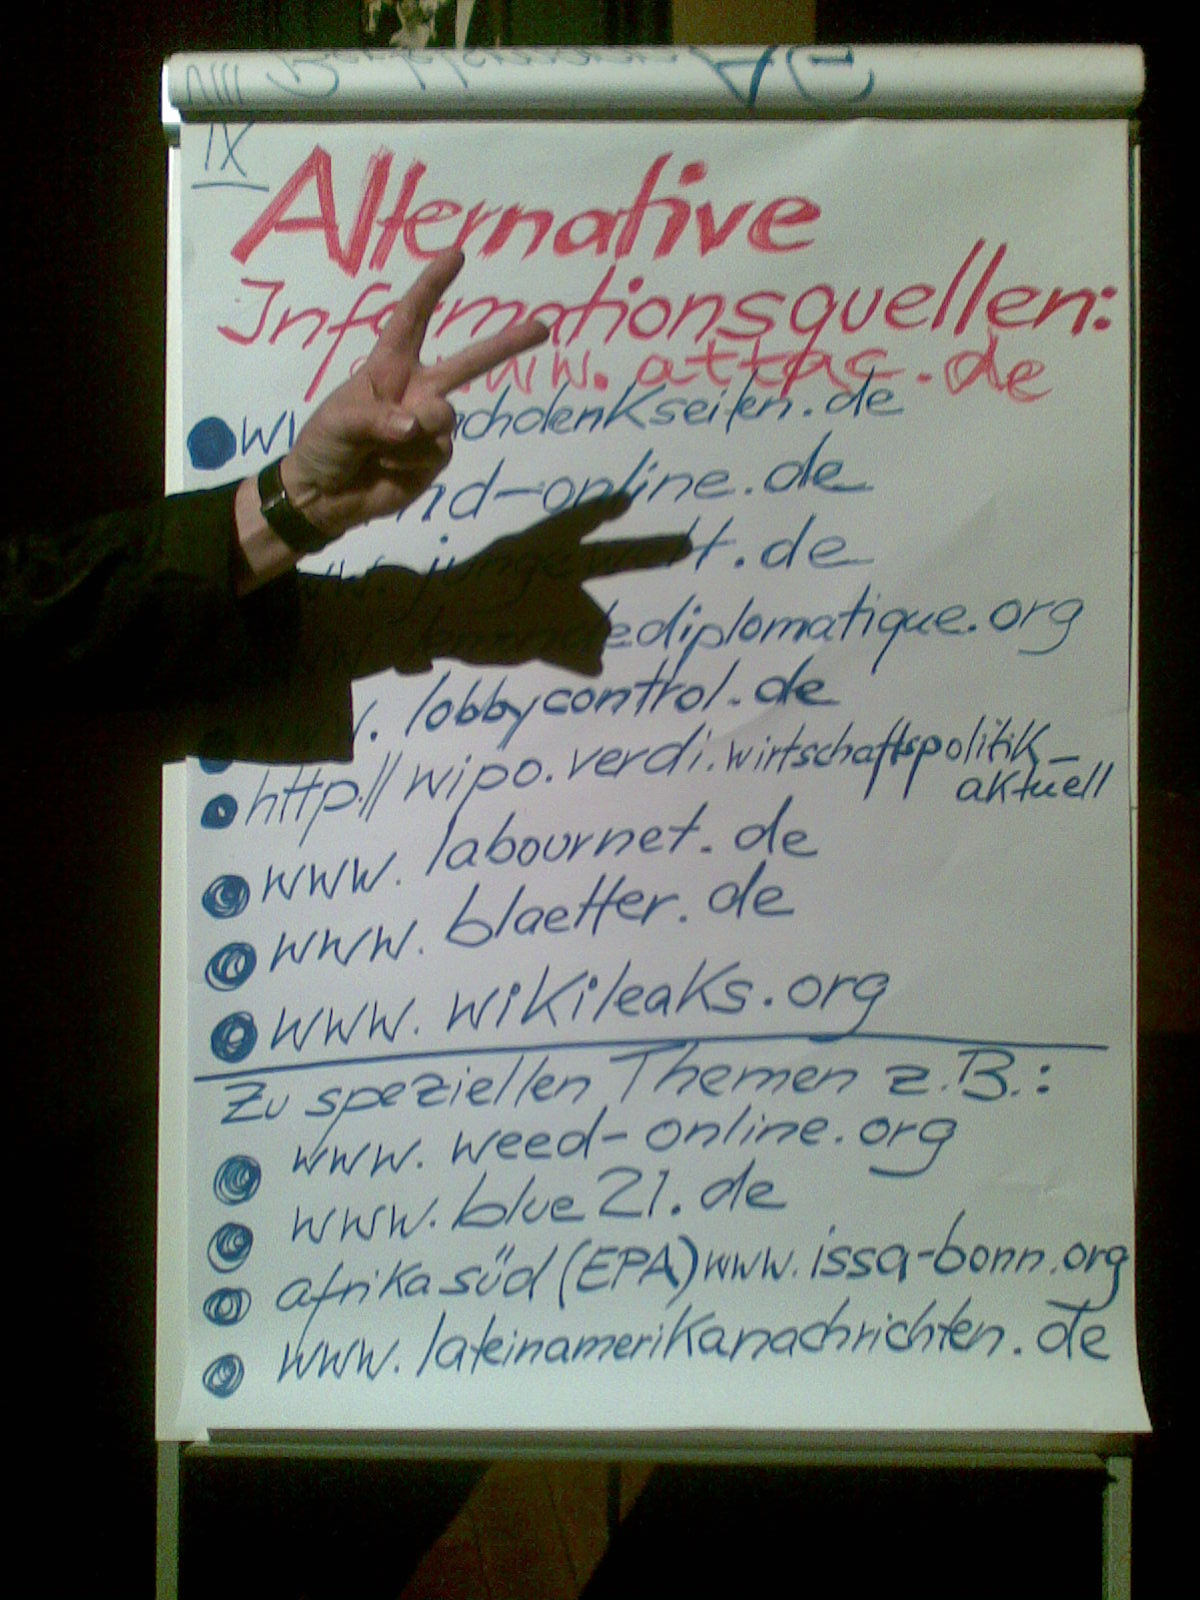 VIII
IX
Alternative
Informationsquellen:
www.attac.de
nachdenkseiten.de
nd-online.de
www.jungewelt.de
lemondediplomatique.org
www.lobbycontrol.de
http// wipo.verdi.wirtschaftspolitik_
aktuell
www.labournet.de
www.blaetter.de
www.wikileaks.org
Zu speziellen Themen z.B.:
www.weed-online.org
www.blue21.de
afrika süd (EPA) www.issa-bonn.org
www.lateinamerikanachrichten.de